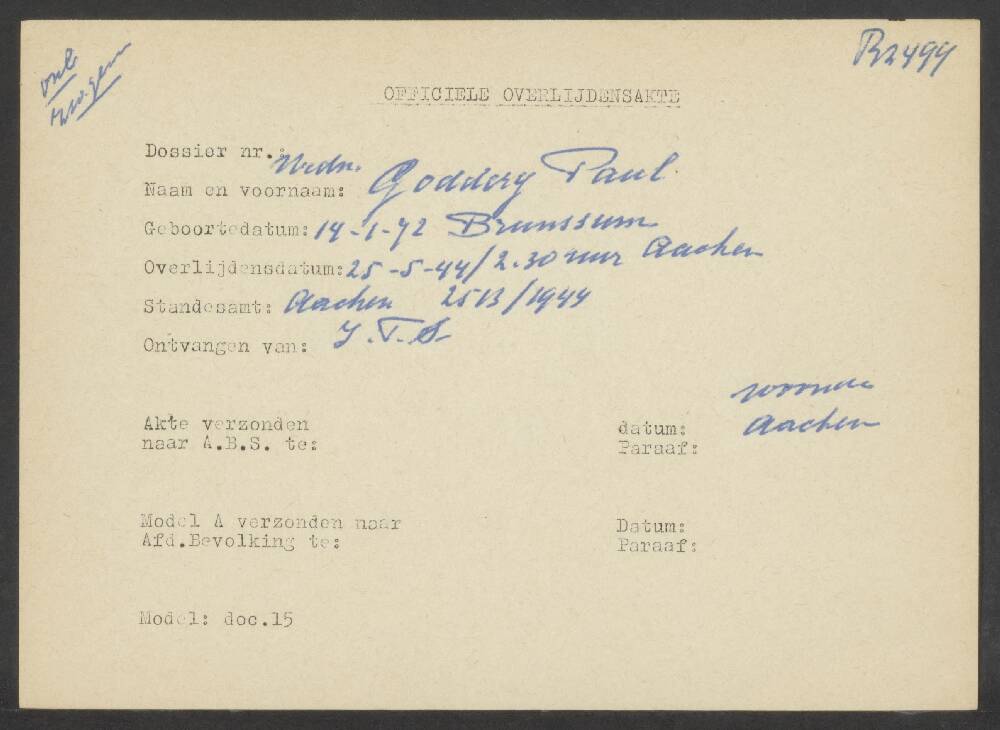 R2499
OFFICIELE OVERLIJDENSAKTE
Dossier nr.:
Naam en voornaam: Goddery Paul
Geboortedatum: 14-1-72 Brunssum
Overlijdensdatum: 25-5-44/2.30 uur Aachen
Standesamt: Aachen 2513/1944
Ontvangen van: I.T.S.
Akte verzonden
naar A.B.S. te:
datum: Aachen
Paraaf:
Model A verzonden naar
Afd.Bevolking te:
Datum:
Paraaf:
Model: doc.15